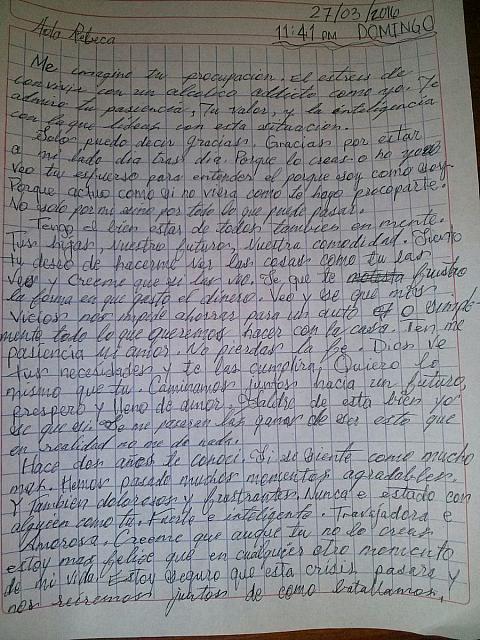 27/03/2016
11:41 PM DOMINGO
Hola Rebeca
Me imagino tu procupación. El estres de
convivir con un alcolico addicto como yo. Te
admiro tu pasiencia, Tu valor, y la inteligencia
con la que lideas con esta situacion.
Solo puedo decir gracias. Gracias por estar
a mi lado dia tras dia. Porque lo creas o no yo
veo tu esfuerzo para entender el porque soy como soy.
Porque actuo como si no viera como te hago procoparte.
No solo por mi sino por todo lo que puede pasar.
Tengo el bien estar de todos tambien en mente.
Tus hijas, Nuestro futuro, Nuestra comodidad. Siento
tu deseo de hacerme ver las cosas como tu las
ves y creeme que si las veo. Se que te frustra
la forma en que gasto el dinero. Veo y se que mis
vicios nos impide ahorrar para un auto o simple-
mente todo lo que queremos hacer con la casa. Ten me
pasiencia mi amor. No pierdas la fe. Dios ve
tus necesidades y te las cumplira. Quiero lo
mismo que tu. Caminamos juntos hacia un futuro
prospero y lleno de amor. Saldre de esta bien yo
se que si. Se me pasaran las ganas de ser esto que
en realidad no me da nada.
Hace dos años te conoci. Si se siente como mucho
mas. Hemos pasado muchos momentos agradables.
Y Tambien dolorosos y frustrantes. Nunca e estado con
alguien como tu. Fuerte e inteligente. Travajadora e
Amorosa. Creeme que auque tu no lo creas
estoy mas felize que en cualquier otro momento
de mi vida. Estoy seguro que esta crisis pasara y
nos reiremos juntos de como batallamos.